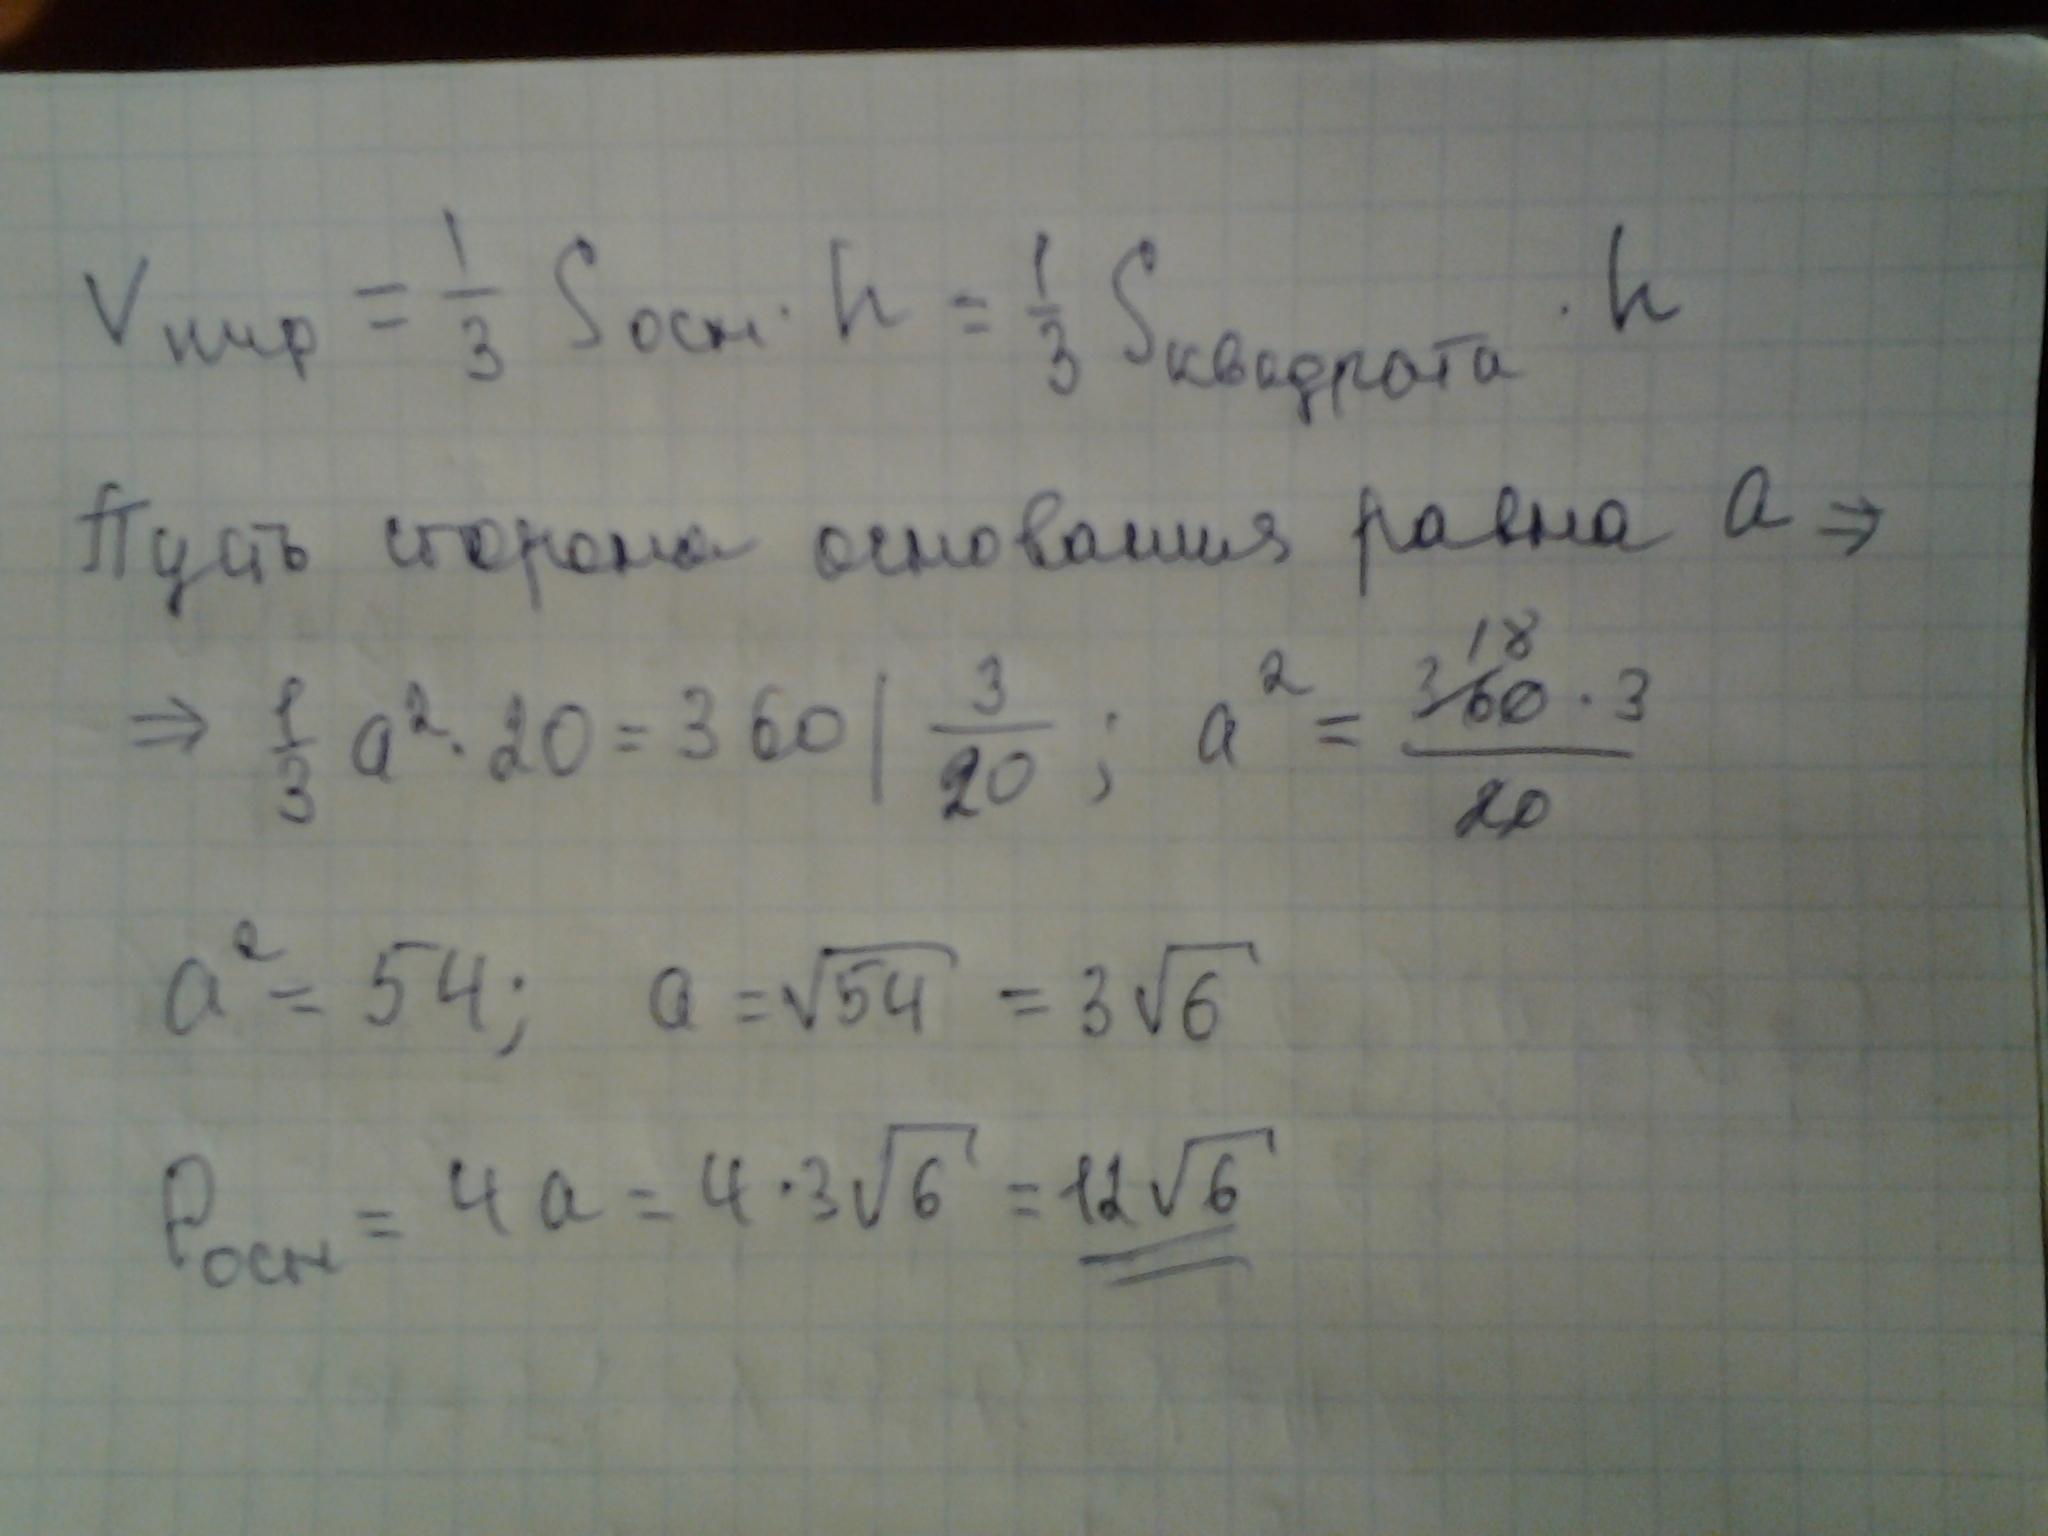 Vпир = 1/3 Sосн. · h = 1/3 Sквадрата · h
Пусть сторона основания равна a ⇒
⇒ 1/3 a² · 20 = 360 | 3/20 ; a² = 360 18 · 3 / 20
a² = 54; a = √54 = 3√6
Pосн = 4a = 4 · 3√6 = 12√6